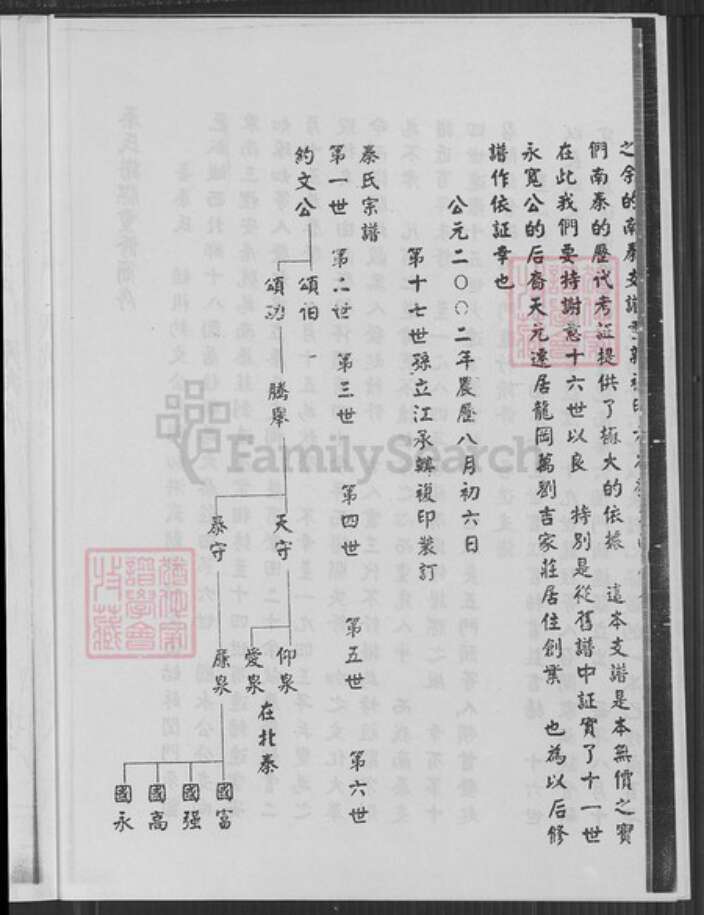 之余的南秦支譜
們南秦的歷代考証提供了極大的依據 這本支譜是本無價之寶
在此我們要特謝慈十六世以良 特別是從舊譜中証實了十一世
永寬公的后裔天元遷居龍岡萬劉吉家莊居住創業 也為以后修
譜作依証幸也
公元二〇〇二年農歷八月初六日
第十七世孫立江承轉複印裝訂
秦氏宗譜
第一世 第二世 第三世 第四世 第五世 第六世
約文公
頌伯
頌功
騰舉
天守
泰守
仰泉
愛泉
康泉
在北秦
國富
國强
國高
國永
FamilySearch